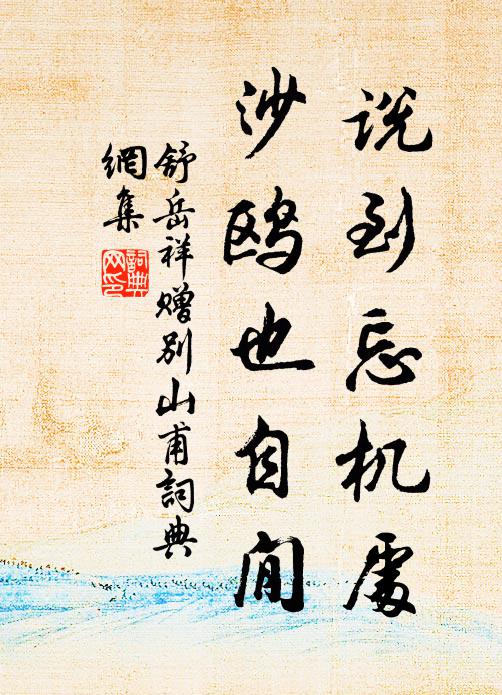 说到忘机處
沙鸥也自间
舒岳祥赠别山甫詞典
網集
詞典
网印